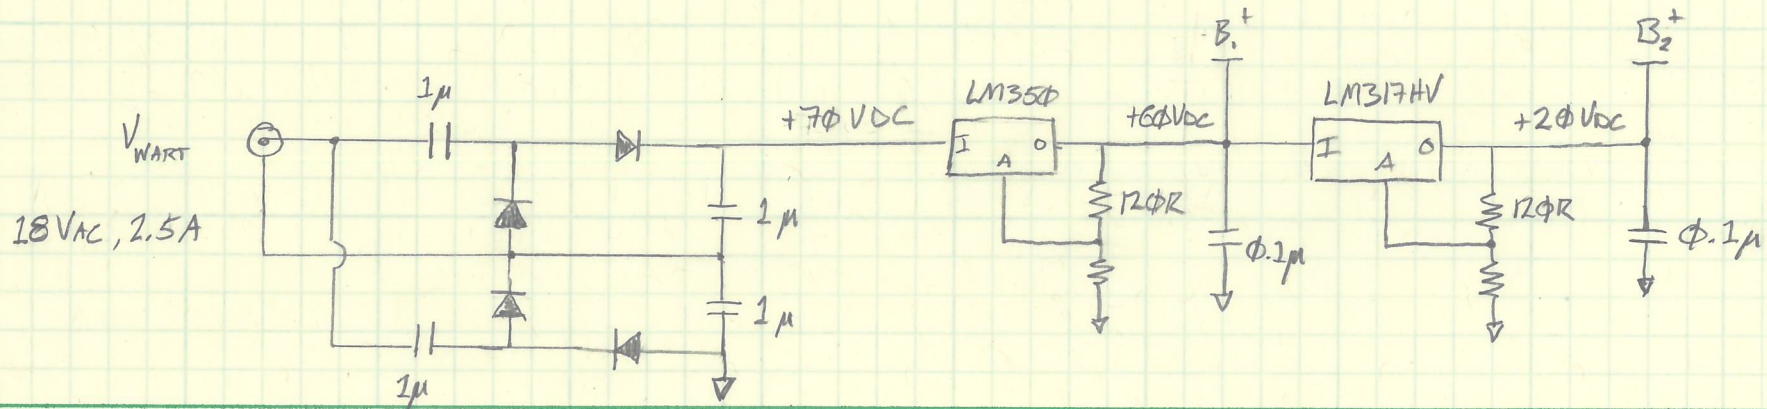 1μ
V WART
18 VAC, 2.5A
1μ
1μ
1μ
+7ØVDC
LM35Ø
I
A
O
+6ØVDC
12ØR
B1+
Ø.1μ
LM317HV
I
A
O
+2ØVDC
12ØR
B2+
Ø.1μ